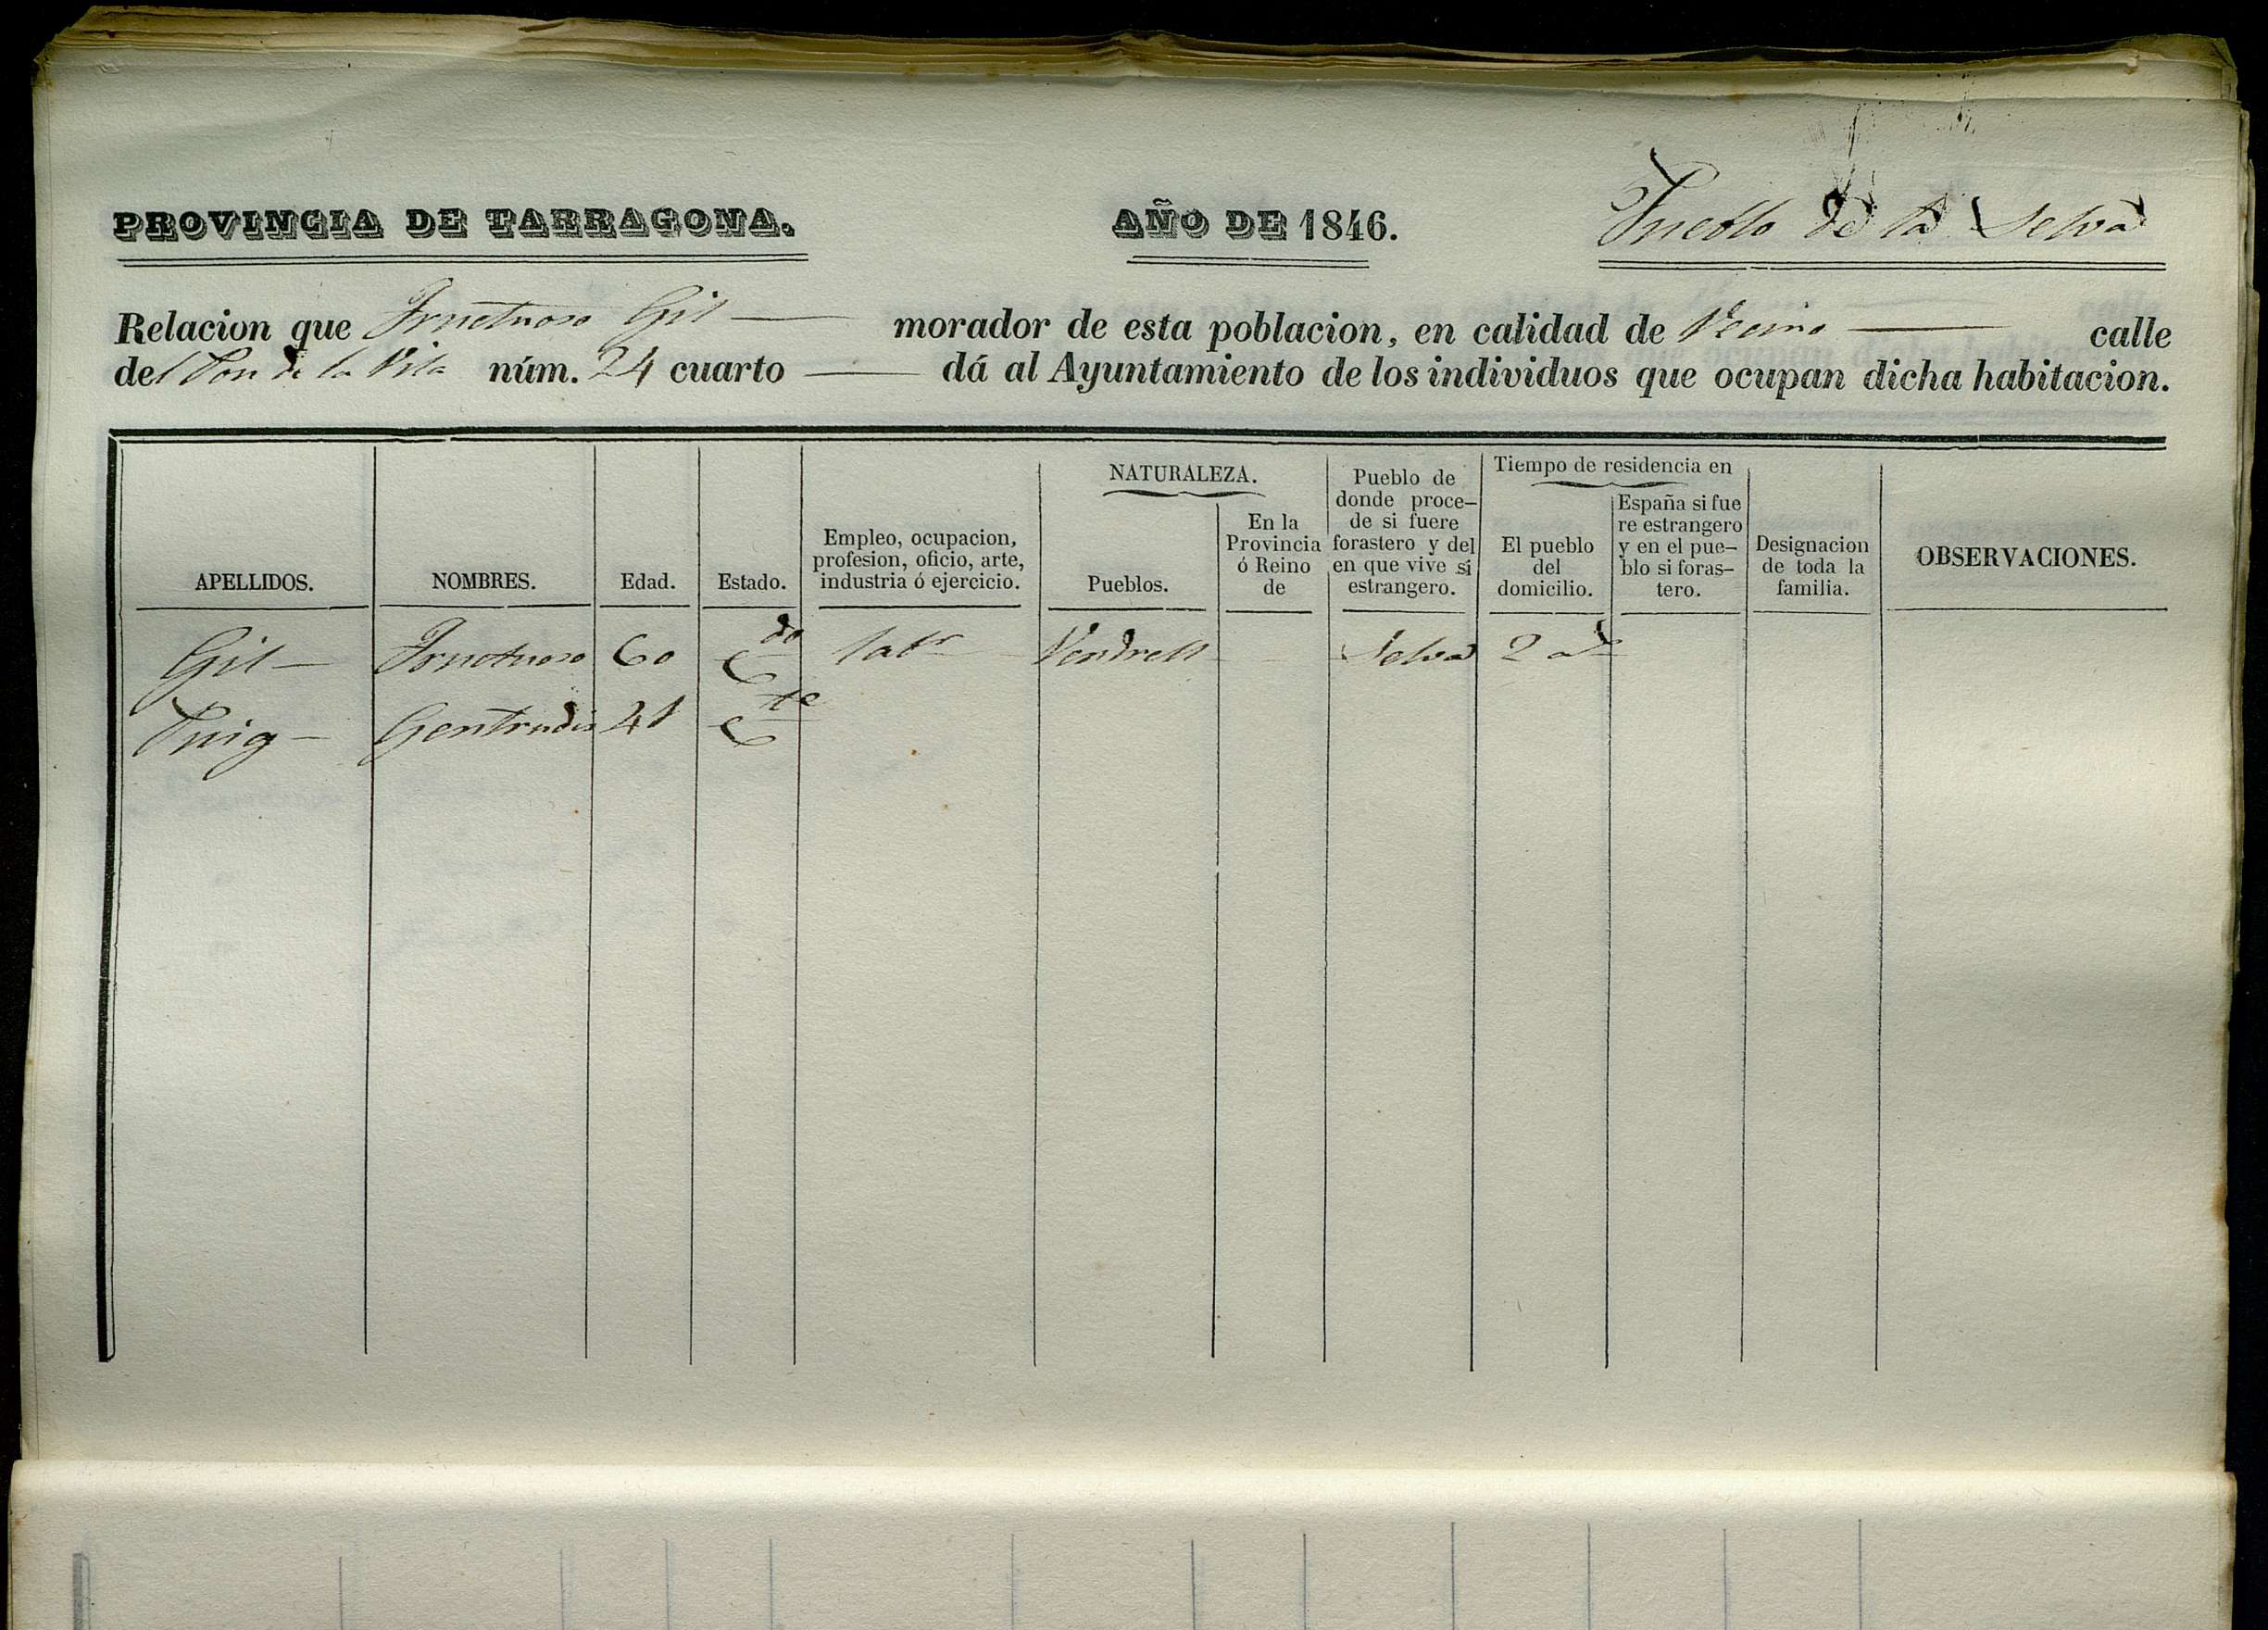 PROVINCIA DE TARRAGONA. AÑO DE 1846. Pueblo de la Selva
Relacion que Fructuoso Gil — morador de esta poblacion, en calidad de Vecino — calle
del Pou de la Vila núm. 24 cuarto — dá al Ayuntamiento de los individuos que ocupan dicha habitacion.
APELLIDOS.
NOMBRES.
Edad.
Estado.
Empleo, ocupacion,
profesion, oficio, arte,
industria ó ejercicio.
NATURALEZA.
Pueblos.
En la
Provincia
ó Reino
de
Pueblo de
donde proce-
de si fuere
forastero y del
en que vive si
estrangero.
Tiempo de residencia en
El pueblo
del
domicilio.
España si fue
re estrangero
y en el pue-
blo si foras-
tero.
Designacion
de toda la
familia.
OBSERVACIONES.
Gil — Fructuoso 60 C.do labr Vendrell Selva 2 a.s
Puig — Gertrudis 41 C.te